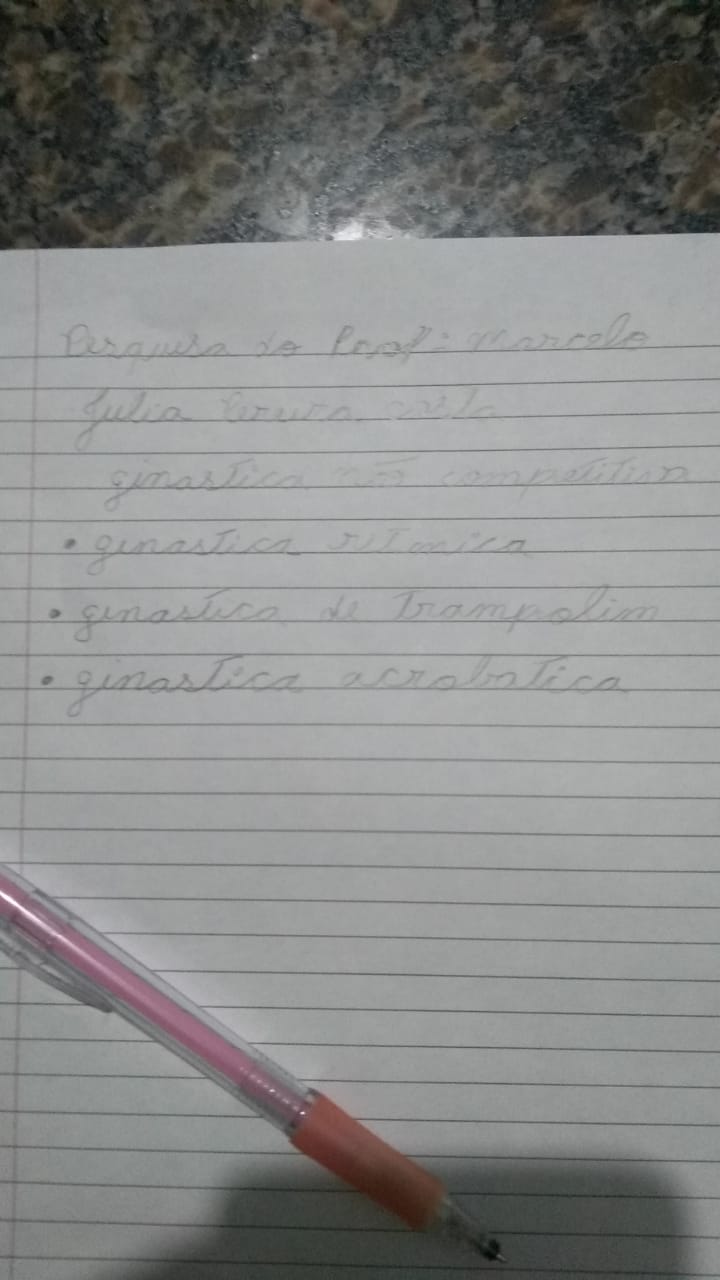 Pesquisa do Prof: Marcelo
Julia
ginastica não competitiva
• ginastica ritmica
• ginastica de Trampolim
• ginastica acrobatica